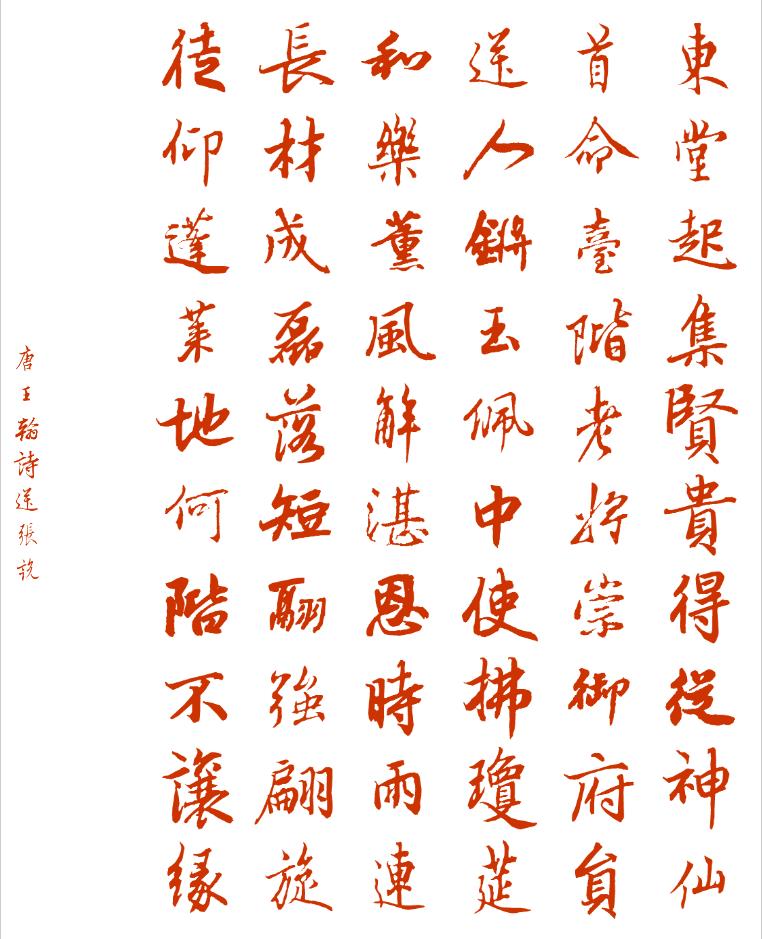 東堂起集賢貴得從神仙
首命臺階老將崇御府員
送人鏘玉佩中使拂瓊筵
和樂薰風解湛恩時雨連
長材成磊落短翮強翩旋
徒仰蓬萊地何階不讓緣
唐王翰詩送張說